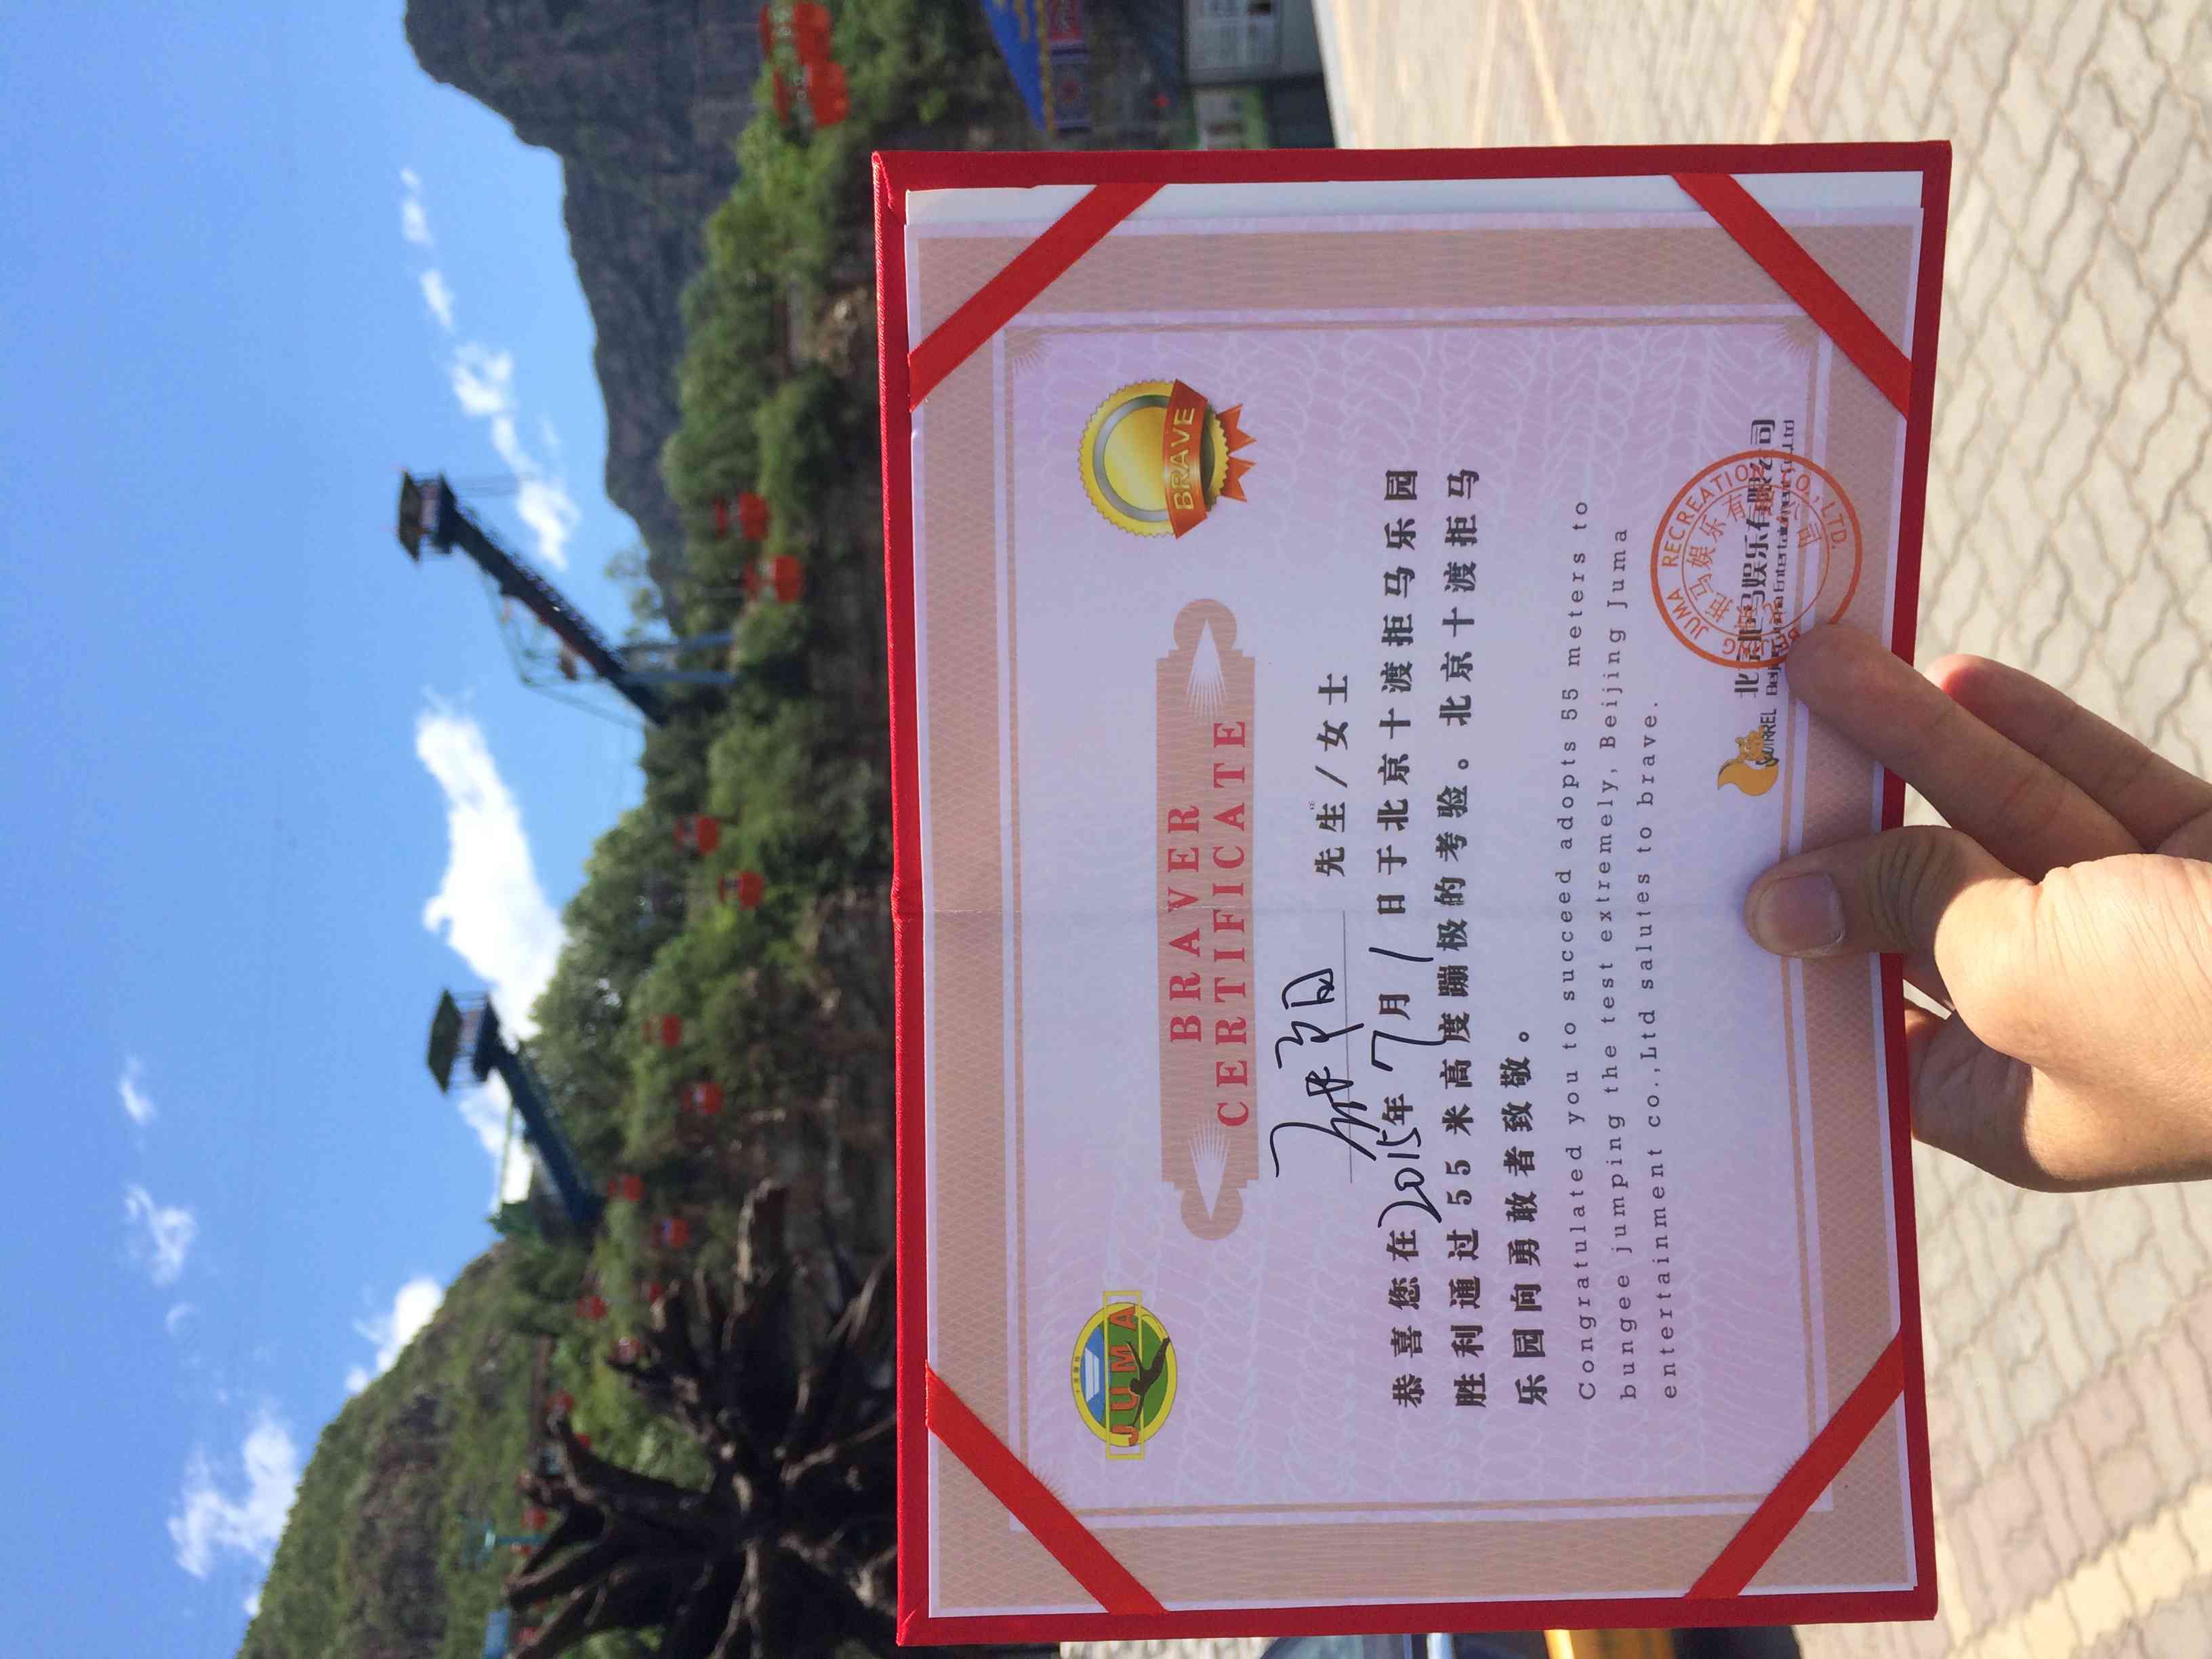 JUMA
BRAVE
BRAVER
CERTIFICATE
阳 先生/女士
恭喜您在2015年7月1日于北京十渡拒马乐园
胜利通过55米高度蹦极的考验。北京十渡拒马
乐园向勇敢者致敬。
Congratulated you to succeed adopts 55 meters to
bungee jumping the test extremely, Beijing Juma
entertainment co.,Ltd salutes to brave.
SQUIRREL
北京拒马娱乐有限公司
Beijing Juma Entertainment Co.,Ltd
BEIJING JUMA RECREATION CO.,LTD.
北京拒马娱乐有限公司